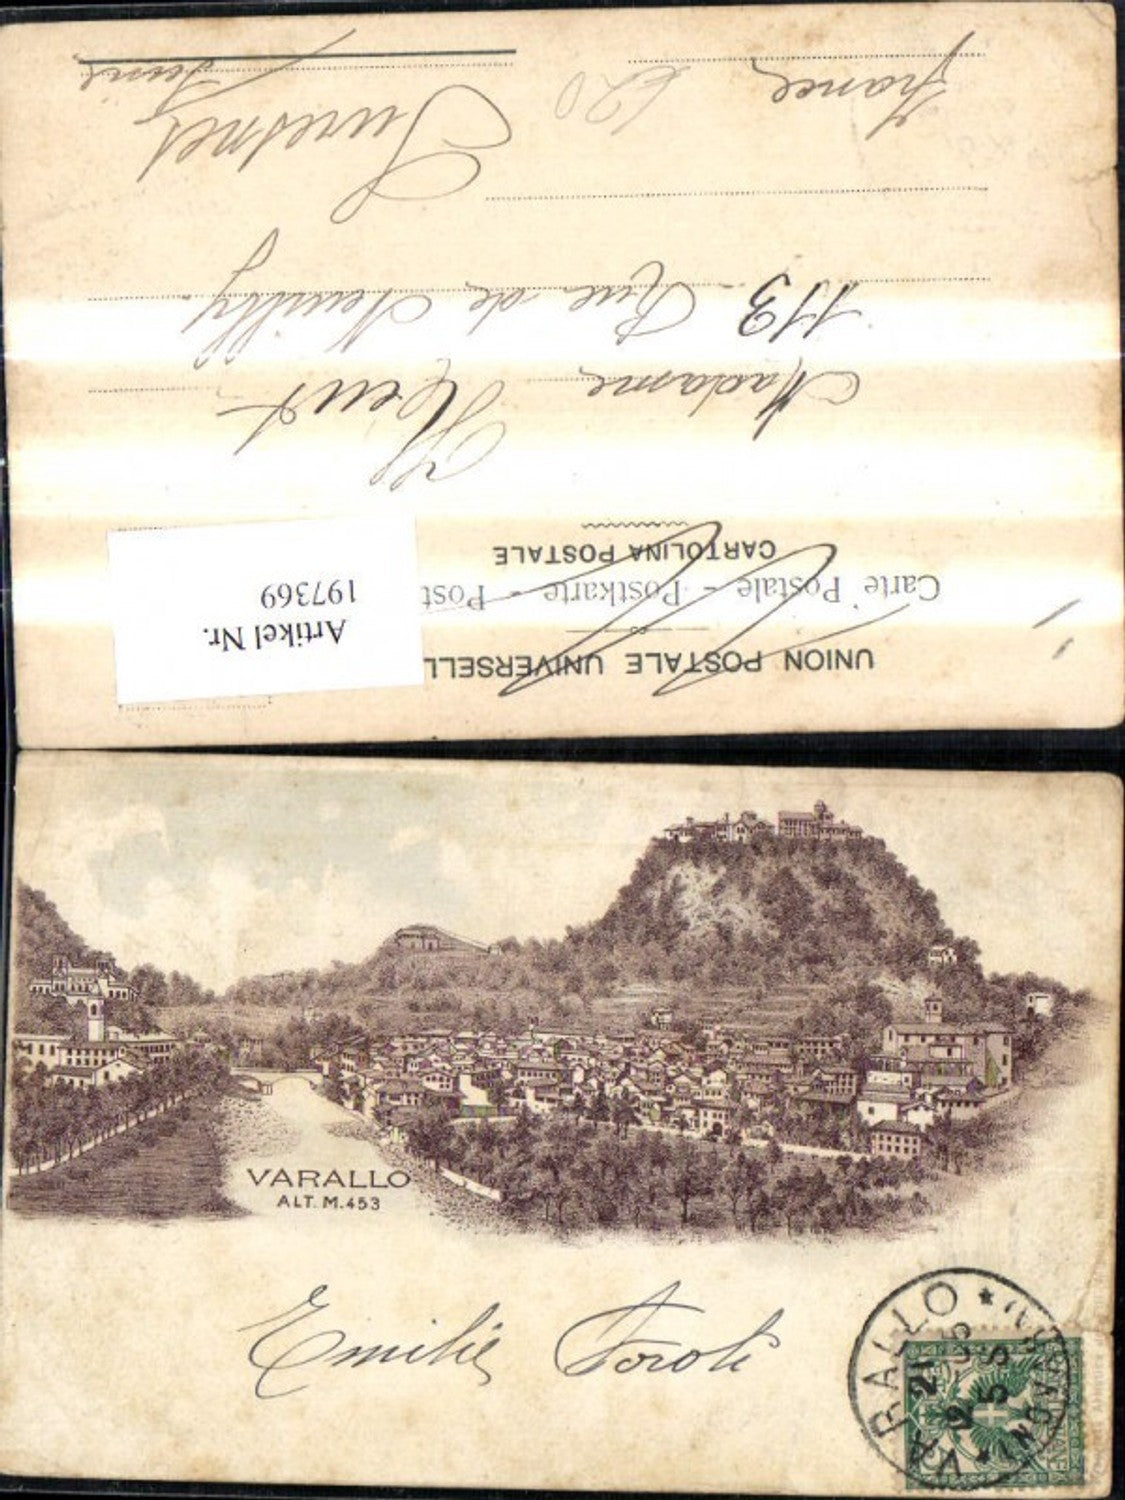 UNION POSTALE UNIVERSELL
Carte Postale - Postkarte - Post
CARTOLINA POSTALE
Artikel Nr.
197369
Madame
113 Rue de Neuilly
Suresnes
Seine
France
620
VARALLO
ALT. M. 453
Emilie
VARALLO
(NOVARA)